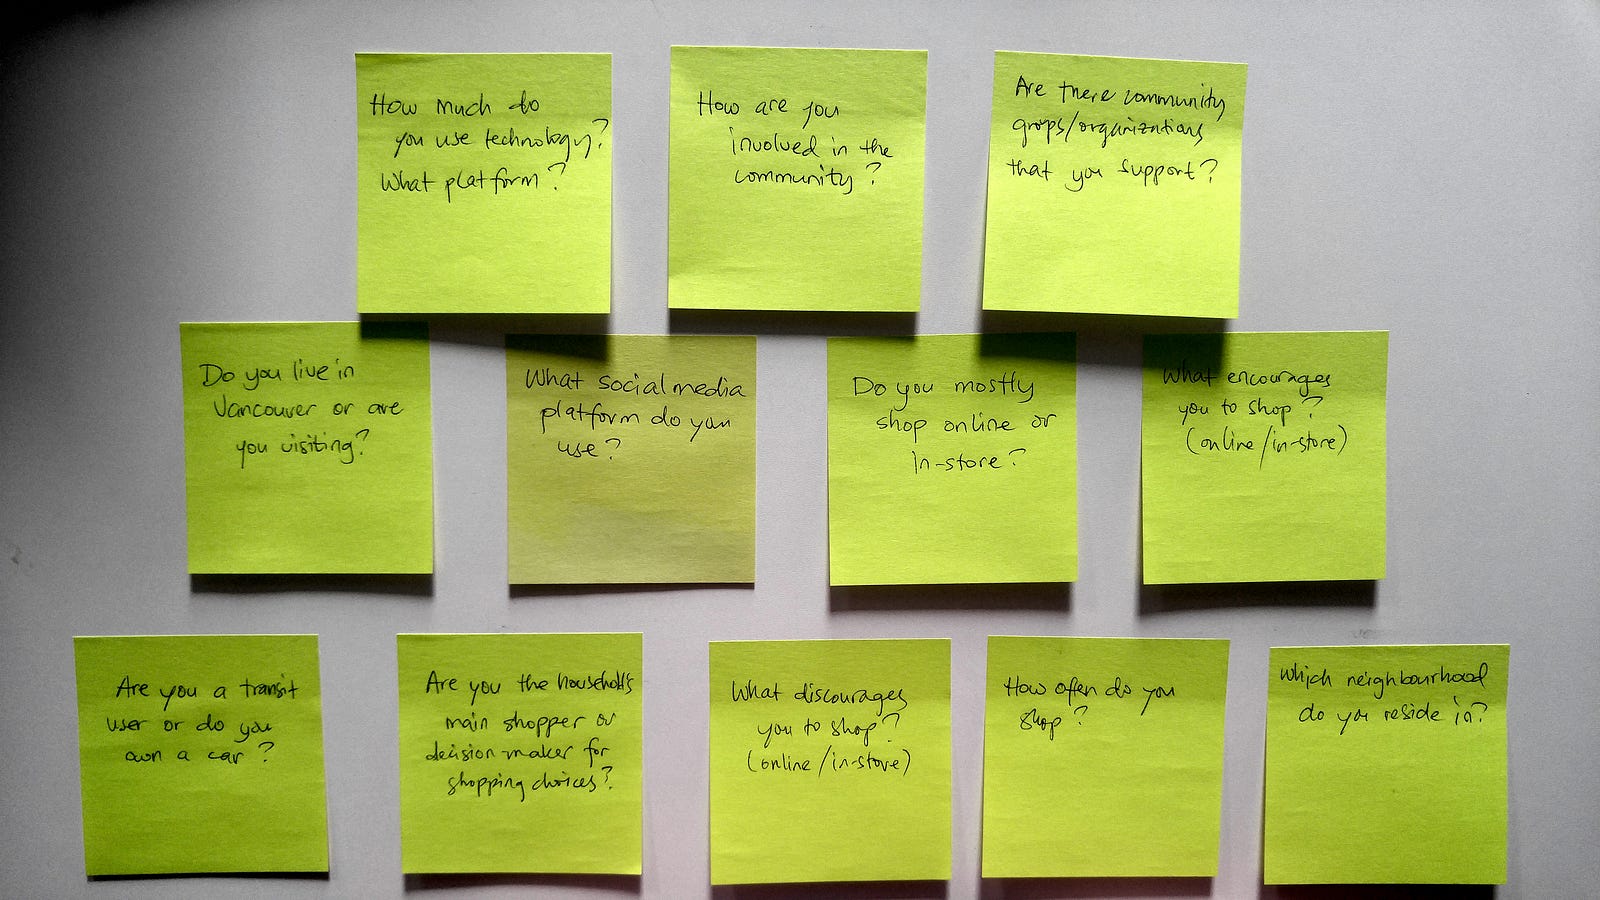 How much do
you use technology?
What platform?
How are you
involved in the
community?
Are there community
groups/organizations
that you support?
Do you live in
Vancouver or are
you visiting?
What social media
platform do you
use?
Do you mostly
shop online or
in-store?
What encourages
you to shop?
(online/in-store)
Are you a transit
user or do you
own a car?
Are you the household's
main shopper or
decision-maker for
shopping choices?
What discourages
you to shop?
(online/in-store)
How often do you
shop?
Which neighbourhood
do you reside in?